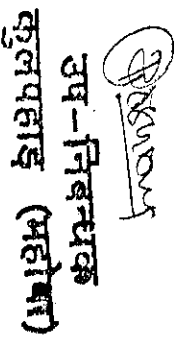 उप-निबन्धक
कुलपहाड़ (महोबा)